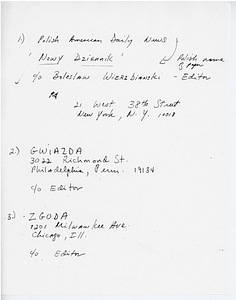 1.) Polish American Daily News
'Nowy Dziennik' Polish name of paper
✓ c/o Boleslaw Wierzbianski - Editor
21 West 38th Street
New York, N.Y. 10018
2.) GWIAZDA
3022 Richmond St.
Philadelphia, Penn. 19134
c/o Editor
3.) ZGODA
1201 Milwaukee Ave.
Chicago, Ill.
c/o Editor